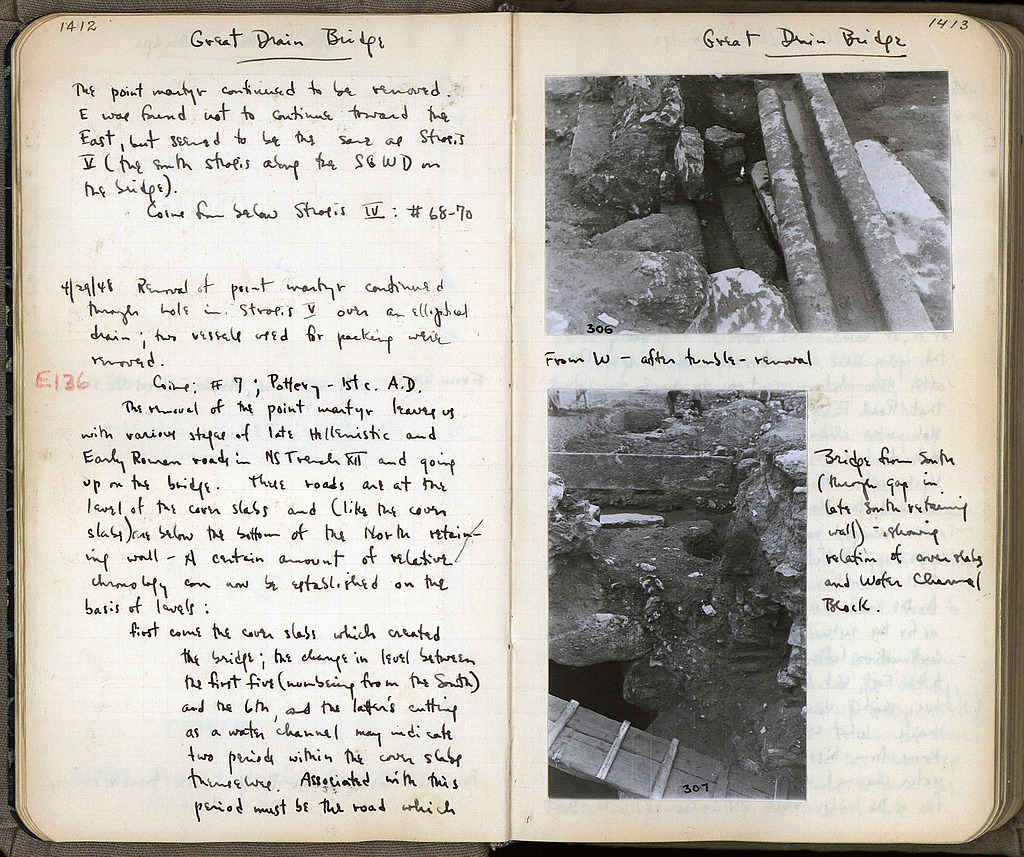 1412
Great Drain Bridge
The point martyr continued to be removed.
E was found not to continue toward the
East, but seemed to be the same as Strosis
V (the south strosis along the S & W D on
the bridge).
Coins from below Strosis IV : # 68-70
4/29/48 Removal of point martyr continued
through hole in Strosis V over an elliptical
drain ; two vessels used for packing were
removed.
E136
Coins: # 7 ; Pottery - 1st c. A.D.
The removal of the point martyr leaves us
with various stages of late Hellenistic and
Early Roman roads in NS Trench XII and going
up on the bridge. These roads are at the
level of the cover slabs and (like the cover
slabs) are below the bottom of the North retain-
ing wall - A certain amount of relative
chronology can now be established on the
basis of levels :
First come the cover slabs which created
the bridge ; the change in level between
the first five (numbering from the South)
and the 6th, and the latter's cutting
as a water channel may indicate
two periods within the cover slabs
themselves. Associated with this
period must be the road which
1413
Great Drain Bridge
306
From W - after tumble - removal
307
Bridge from South
(through gap in
late South retaining
wall) - showing
relation of cover slabs
and Water Channel
Block.